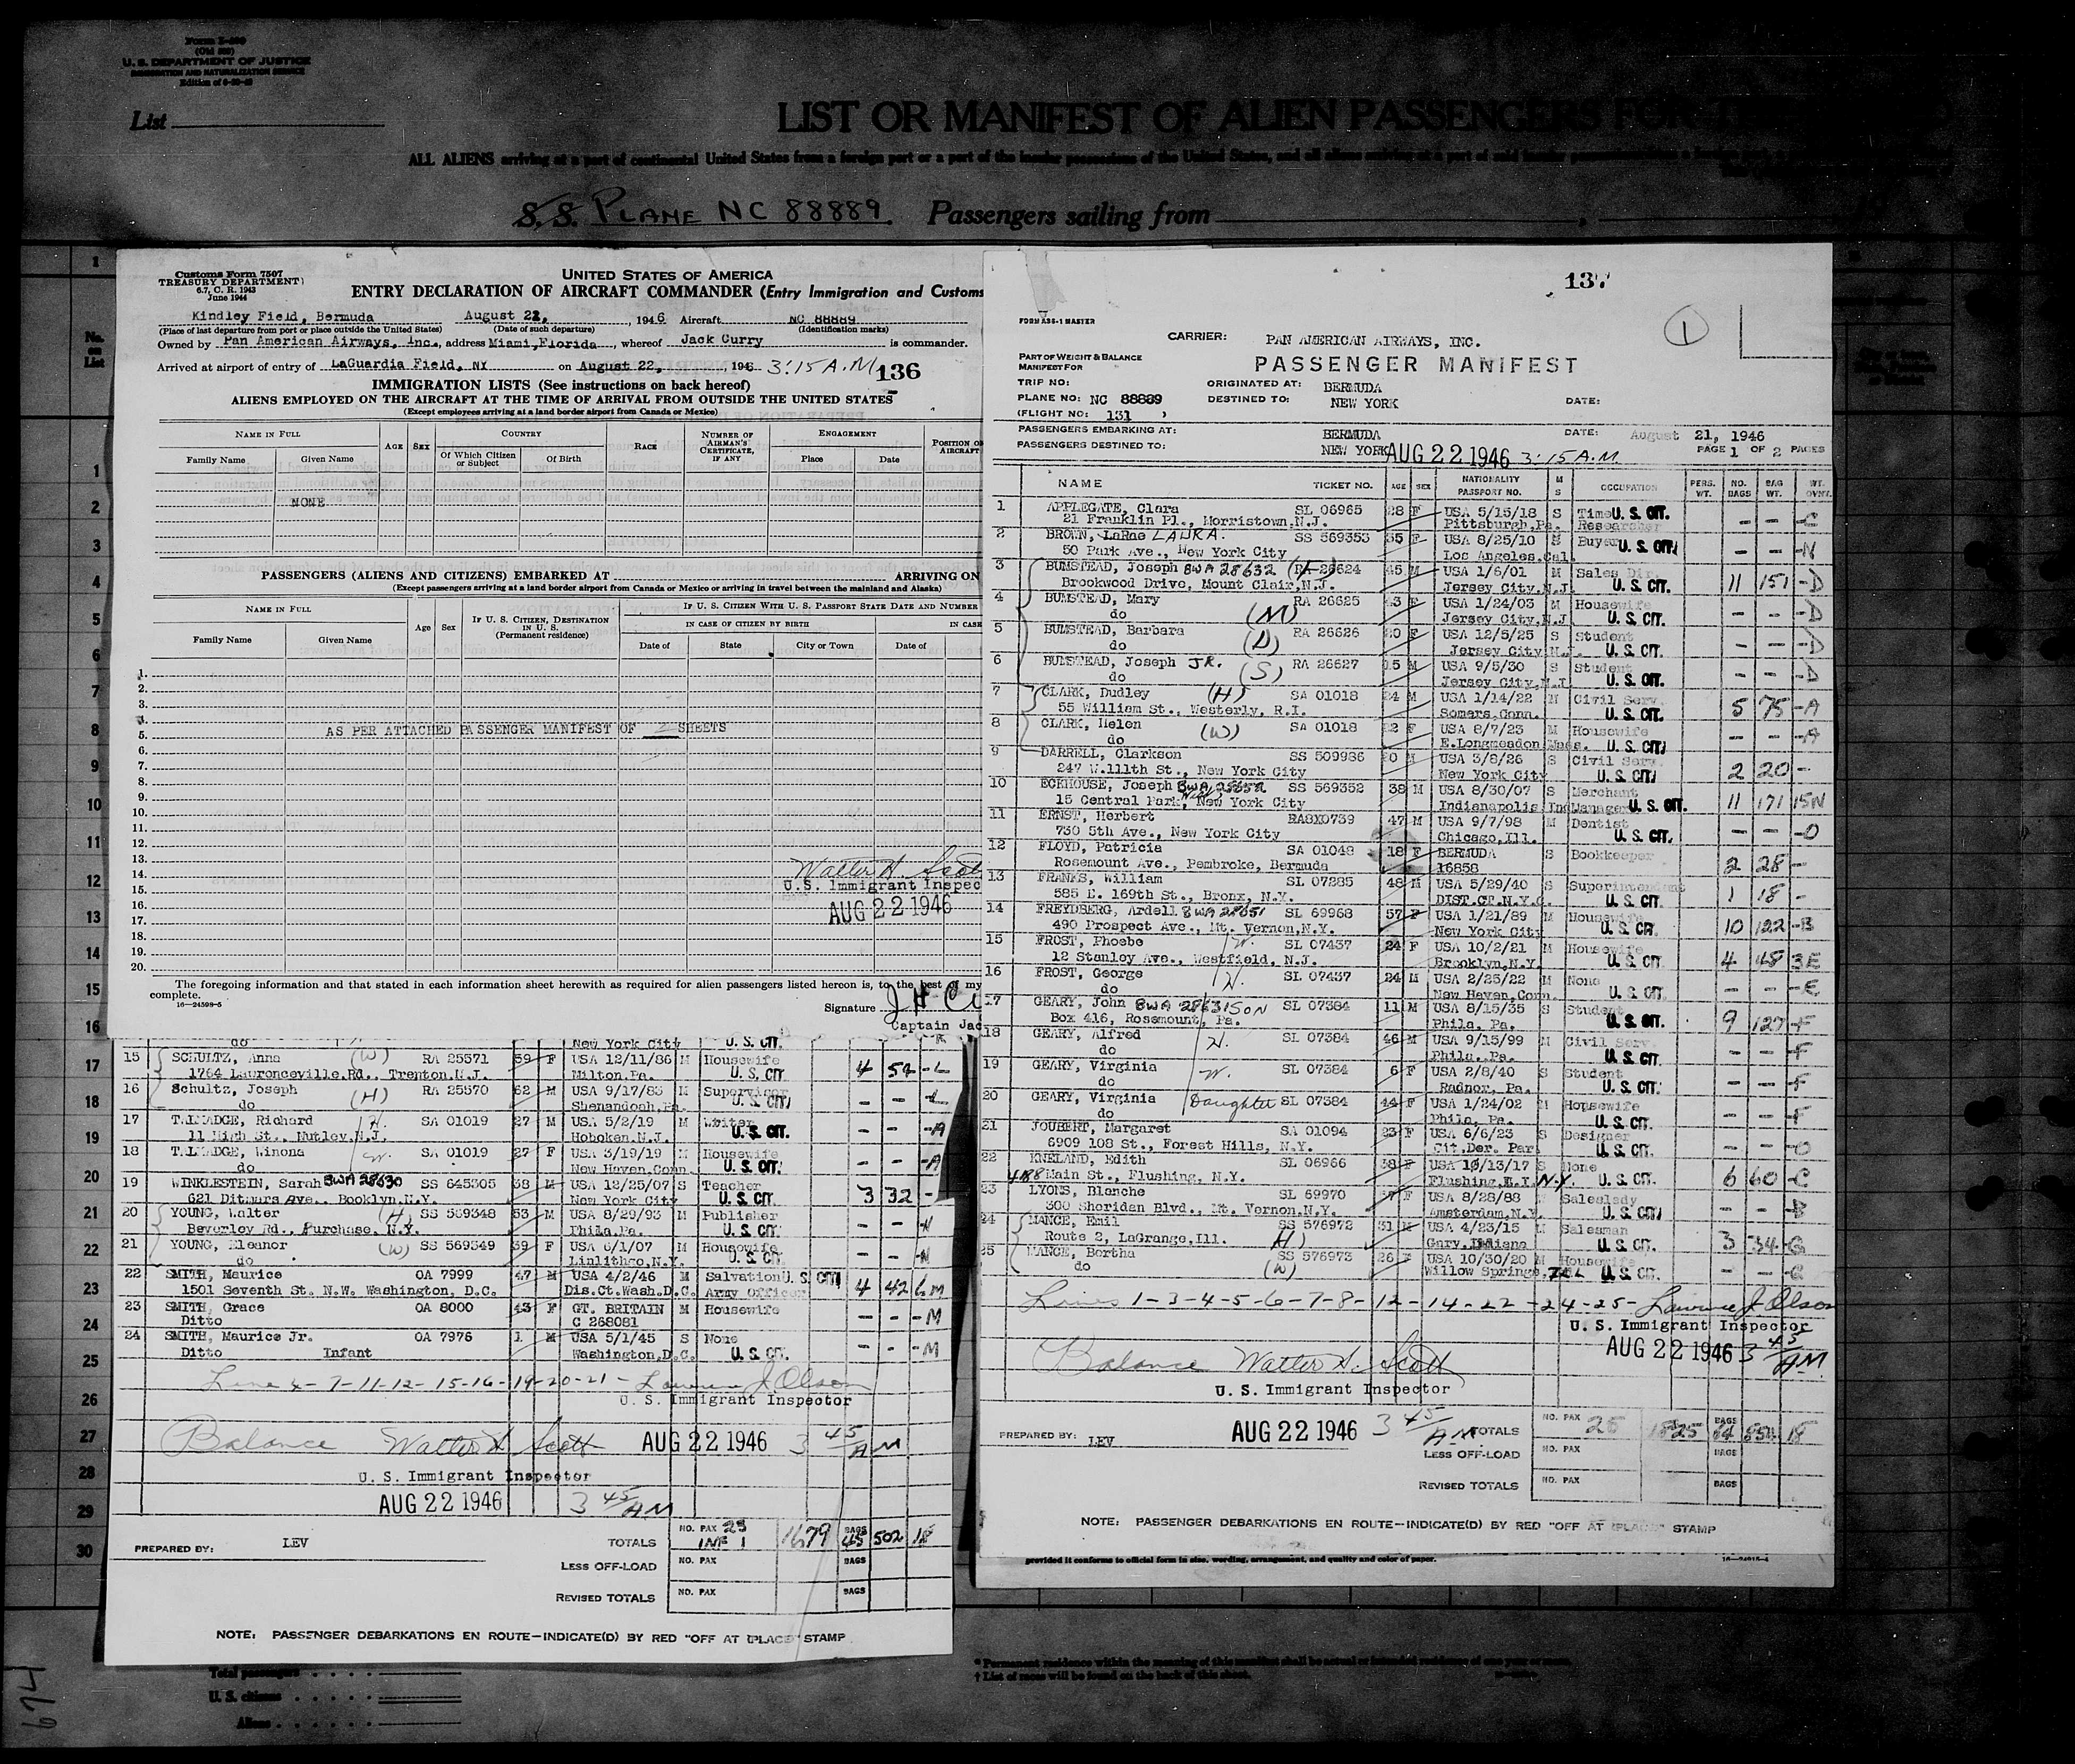 Form I-400
(Old 500)
U. S. DEPARTMENT OF JUSTICE
IMMIGRATION AND NATURALIZATION SERVICE
List
LIST OR MANIFEST OF ALIEN PASSENGERS FOR THE
ALL ALIENS arriving at a port of continental United States from a foreign port or a port of the insular possessions of the United States, and all aliens arriving at a port of said insular possessions from a foreign port
S. S. PLANE NC 88889. Passengers sailing from
No. on List
Customs Form 7507
TREASURY DEPARTMENT
6.7, C. R. 1943
June 1944
UNITED STATES OF AMERICA
ENTRY DECLARATION OF AIRCRAFT COMMANDER (Entry Immigration and Customs
Kindley Field, Bermuda August 21, 1946 Aircraft NC 88889
(Place of last departure from port or place outside the United States) (Date of such departure) (Identification marks)
Owned by Pan American Airways, Inc., address Miami, Florida, whereof Jack Curry is commander.
Arrived at airport of entry of LaGuardia Field, NY on August 22, 1946 3:15 A.M. 136
IMMIGRATION LISTS (See instructions on back hereof)
ALIENS EMPLOYED ON THE AIRCRAFT AT THE TIME OF ARRIVAL FROM OUTSIDE THE UNITED STATES
(Except employees arriving at a land border airport from Canada or Mexico)
NAME IN FULL AGE SEX COUNTRY RACE NUMBER OF AIRMAN'S CERTIFICATE, IF ANY ENGAGEMENT POSITION O
Family Name Given Name Of Which Citizen or Subject Of Birth Place Date AIRCRAFT
NONE
PASSENGERS (ALIENS AND CITIZENS) EMBARKED AT ARRIVING ON
(Except passengers arriving at a land border airport from Canada or Mexico or arriving in travel between the mainland and Alaska)
NAME IN FULL Age Sex IF U. S. CITIZEN, DESTINATION IN U. S. (Permanent residence) IF U. S. CITIZEN WITH U. S. PASSPORT STATE DATE AND NUMBER
IN CASE OF CITIZEN BY BIRTH IN CASE
Family Name Given Name Date of State City or Town Date of
1.
2.
3.
4.
AS PER ATTACHED PASSENGER MANIFEST OF 2 SHEETS
5.
6.
7.
8.
9.
10.
11.
12.
13.
14.
15.
16.
17.
18.
19.
20.
Walter H. Scott
U.S. Immigrant Inspec
AUG 22 1946
The foregoing information and that stated in each information sheet herewith as required for alien passengers listed hereon is, to the best of my
complete.
16—24598-5
Signature J H Cu
Captain Jac
do New York City U. S. CIT.
15 SCHULTZ, Anna (W) RA 25571 59 F USA 12/11/86 M Housewife
1764 Lawrenceville Rd., Trenton, N.J. Milton, Pa. U. S. CIT 4 54 -L
16 Schultz, Joseph (H) RA 25570 62 M USA 9/17/83 M Supervisor
do Shenandoah, Pa. U. S. CIT. - - -L
17 TALMADGE, Richard H. SA 01019 27 M USA 5/2/19 M Writer
11 High St., Nutley, N.J. Hoboken, N.J. U. S. CIT. - - -A
18 TALMADGE, Winona W. SA 01019 27 F USA 3/19/19 M Housewife
do New Haven, Conn. U. S. CIT. - - -A
19 WINKLESTEIN, Sarah BWA 28630 SS 645305 38 M USA 12/25/07 S Teacher
621 Ditmars Ave., Booklyn, N.Y. New York City U. S. CIT. 3 32 -
20 YOUNG, Walter (H) SS 569348 53 M USA 8/29/93 M Publisher
Beverley Rd., Purchase, N.Y. Phila. Pa. U. S. CIT. - - -N
21 YOUNG, Eleanor (W) SS 569349 39 F USA 6/1/07 M Housewife
do Linlithgo, N.Y. U. S. CIT. - - -N
22 SMITH, Maurice OA 7999 47 M USA 4/2/46 M Salvation U. S. CIT.
1501 Seventh St. N.W. Washington, D.C. Dis.Ct.Wash.D.C. Army Officer 4 42 6M
23 SMITH, Grace OA 8000 43 F GT. BRITAIN M Housewife
Ditto C 268081 - - -M
24 SMITH, Maurice Jr. OA 7976 1 M USA 5/1/45 S None
Ditto Infant Washington, D.C. U. S. CIT. - - -M
Line 4-7-11-12-15-16-19-20-21 - Lawrence J. Olson
U. S. Immigrant Inspector
Balance Walter H. Scott AUG 22 1946 3 45/AM
U. S. Immigrant Inspector
AUG 22 1946 3 45/AM
PREPARED BY: LEV TOTALS NO. PAX 23 INF 1 1679 BAGS 45 502 18
LESS OFF-LOAD NO. PAX BAGS
REVISED TOTALS NO. PAX BAGS
NOTE: PASSENGER DEBARKATIONS EN ROUTE—INDICATE(D) BY RED "OFF AT (PLACE)" STAMP
137
1
FORM ASS-1 MASTER
CARRIER: PAN AMERICAN AIRWAYS, INC.
PART OF WEIGHT & BALANCE
MANIFEST FOR
PASSENGER MANIFEST
TRIP NO: ORIGINATED AT: BERMUDA
PLANE NO: NC 88889 DESTINED TO: NEW YORK DATE:
(FLIGHT NO: 131 )
PASSENGERS EMBARKING AT: BERMUDA DATE: August 21, 1946
PASSENGERS DESTINED TO: NEW YORK AUG 22 1946 3:15 A.M. PAGE 1 OF 2 PAGES
NAME TICKET NO. AGE SEX NATIONALITY PASSPORT NO. M S OCCUPATION PERS. WT. NO. BAGS BAG WT. WT. OVNT.
1 APPLEGATE, Clara SL 06965 28 F USA 5/15/18 S Time U. S. CIT.
21 Franklin Pl., Morristown, N.J. Pittsburgh, Pa. Researcher - - -C
2 BROWN, LaRae LAURA. SS 569353 35 F USA 8/25/10 S Buyer U. S. CIT.
50 Park Ave., New York City Los Angeles, Cal. - - -N
3 BUMSTEAD, Joseph BWA 28632 RA 26624 45 M USA 1/6/01 M Sales Dir.
Brookwood Drive, Mount Clair, N.J. Jersey City, N.J. U. S. CIT. 11 151 -D
4 BUMSTEAD, Mary (M) RA 26625 43 F USA 1/24/03 M Housewife
do Jersey City, N.J. U. S. CIT. - - -D
5 BUMSTEAD, Barbara (D) RA 26626 20 F USA 12/5/25 S Student
do Jersey City, N.J. U. S. CIT. - - -D
6 BUMSTEAD, Joseph JR. (S) RA 26627 15 M USA 9/5/30 S Student
do Jersey City, N.J. U. S. CIT. - - -D
7 CLARK, Dudley (H) SA 01018 24 M USA 1/14/22 M Civil Serv.
55 William St., Westerly, R.I. Somers, Conn. U. S. CIT. 5 75 -A
8 CLARK, Helen (W) SA 01018 22 F USA 8/7/23 M Housewife
do E.Longmeadon Mass. U. S. CIT. - - -A
9 DARRELL, Clarkson SS 509986 20 M USA 3/8/26 S Civil Serv.
247 W.111th St., New York City New York City U. S. CIT. 2 20 -
10 ECKHOUSE, Joseph BWA SS 569352 38 M USA 8/30/07 S Merchant
15 Central Park, New York City Indianapolis Ind Manager U. S. CIT. 11 171 15N
11 ERNST, Herbert RA8X0739 47 M USA 9/7/98 M Dentist
730 5th Ave., New York City Chicago, Ill. U. S. CIT. - - -O
12 FLOYD, Patricia SA 01048 18 F BERMUDA S Bookkeeper
Rosemount Ave., Pembroke, Bermuda 16858 2 28 -
13 FRANKS, William SL 07285 48 M USA 5/29/40 S Superintendent
585 E. 169th St., Bronx, N.Y. DIST.CT.N.Y.C. U. S. CIT. 1 18 -
14 FREYDBERG, Ardell BWA 28651 SL 69968 57 F USA 1/21/89 M Housewife
490 Prospect Ave., Mt. Vernon, N.Y. New York City U. S. CIT. 10 122 -B
15 FROST, Phoebe W. SL 07437 24 F USA 10/2/21 M Housewife
12 Stanley Ave., Westfield, N.J. Brooklyn, N.Y. U. S. CIT. 4 48 3E
16 FROST, George H. SL 07437 24 M USA 2/25/22 M None
do New Haven, Conn. U. S. CIT. - - -E
17 GEARY, John BWA 28631 SON SL 07384 11 M USA 8/15/35 S Student
Box 416, Rosemount, Pa. Phila. Pa. U. S. CIT. 9 127 -F
18 GEARY, Alfred H. SL 07384 46 M USA 9/15/99 M Civil Serv.
do Phila. Pa. U. S. CIT. - - -F
19 GEARY, Virginia W. SL 07384 6 F USA 2/8/40 S Student
do Radnor, Pa. U. S. CIT. - - -F
20 GEARY, Virginia Daughter SL 07384 44 F USA 1/24/02 M Housewife
do Phila, Pa. U. S. CIT. - - -F
21 JOUBERT, Margaret SA 01094 23 F USA 6/6/23 S Designer
6909 108 St., Forest Hills, N.Y. Cit.Der. Par. U. S. CIT. - - -O
22 KNELAND, Edith SL 06966 38 F USA 10/13/17 S None
488 Main St., Flushing, N.Y. Flushing, N.Y. N.Y. U. S. CIT. 6 60 -C
23 LYONS, Blanche SL 69970 57 F USA 8/28/88 Saleslady
300 Sheridan Blvd., Mt. Vernon, N.Y. Amsterdam, N.Y. U. S. CIT. - - -B
24 MANCE, Emil SS 576972 31 M USA 4/23/15 M Salesman
Route 2, LaGrange, Ill. (H) Gary, Indiana U. S. CIT. 3 34 -G
25 MANCE, Bertha SS 576973 26 F USA 10/30/20 M Housewife
do (W) Willow Springs, ILL U. S. CIT. - - -G
Lines 1-3-4-5-6-7-8-12-14-22-24-25- Lawrence J. Olson
U. S. Immigrant Inspector
AUG 22 1946 3 45/AM
Balance Walter H. Scott
U. S. Immigrant Inspector
PREPARED BY: LEV AUG 22 1946 3 45/AM TOTALS NO. PAX 25 1825 BAGS 64 854 18
LESS OFF-LOAD NO. PAX BAGS
REVISED TOTALS NO. PAX BAGS
NOTE: PASSENGER DEBARKATIONS EN ROUTE—INDICATE(D) BY RED "OFF AT (PLACE)" STAMP
provided it conforms to official form in size, wording, arrangement, and quality and color of paper.
Total passengers
U. S. citizens
Aliens
* Permanent residence within the meaning of this manifest shall be actual or intended residence of one year or more.
† List of races will be found on the back of this sheet.
674